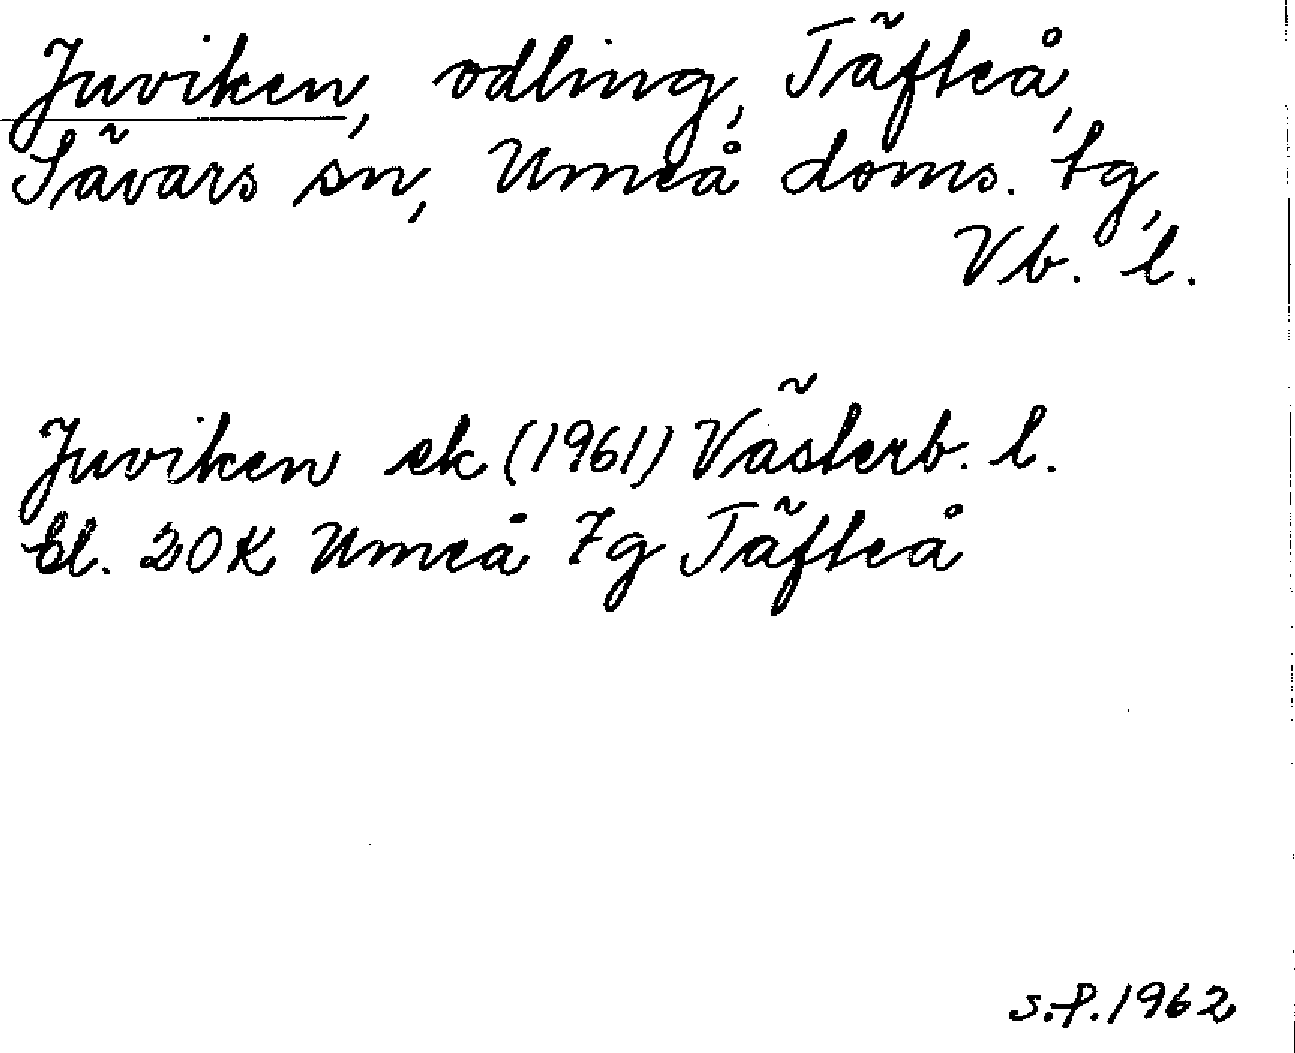 Juviken, odling, Täfteå,
Sävars sn, Umeå doms. tg,
Vb. l.
Juviken ek (1961) Västerb. l.
bl. 20K Umeå 7g Täfteå
s.f. 1962